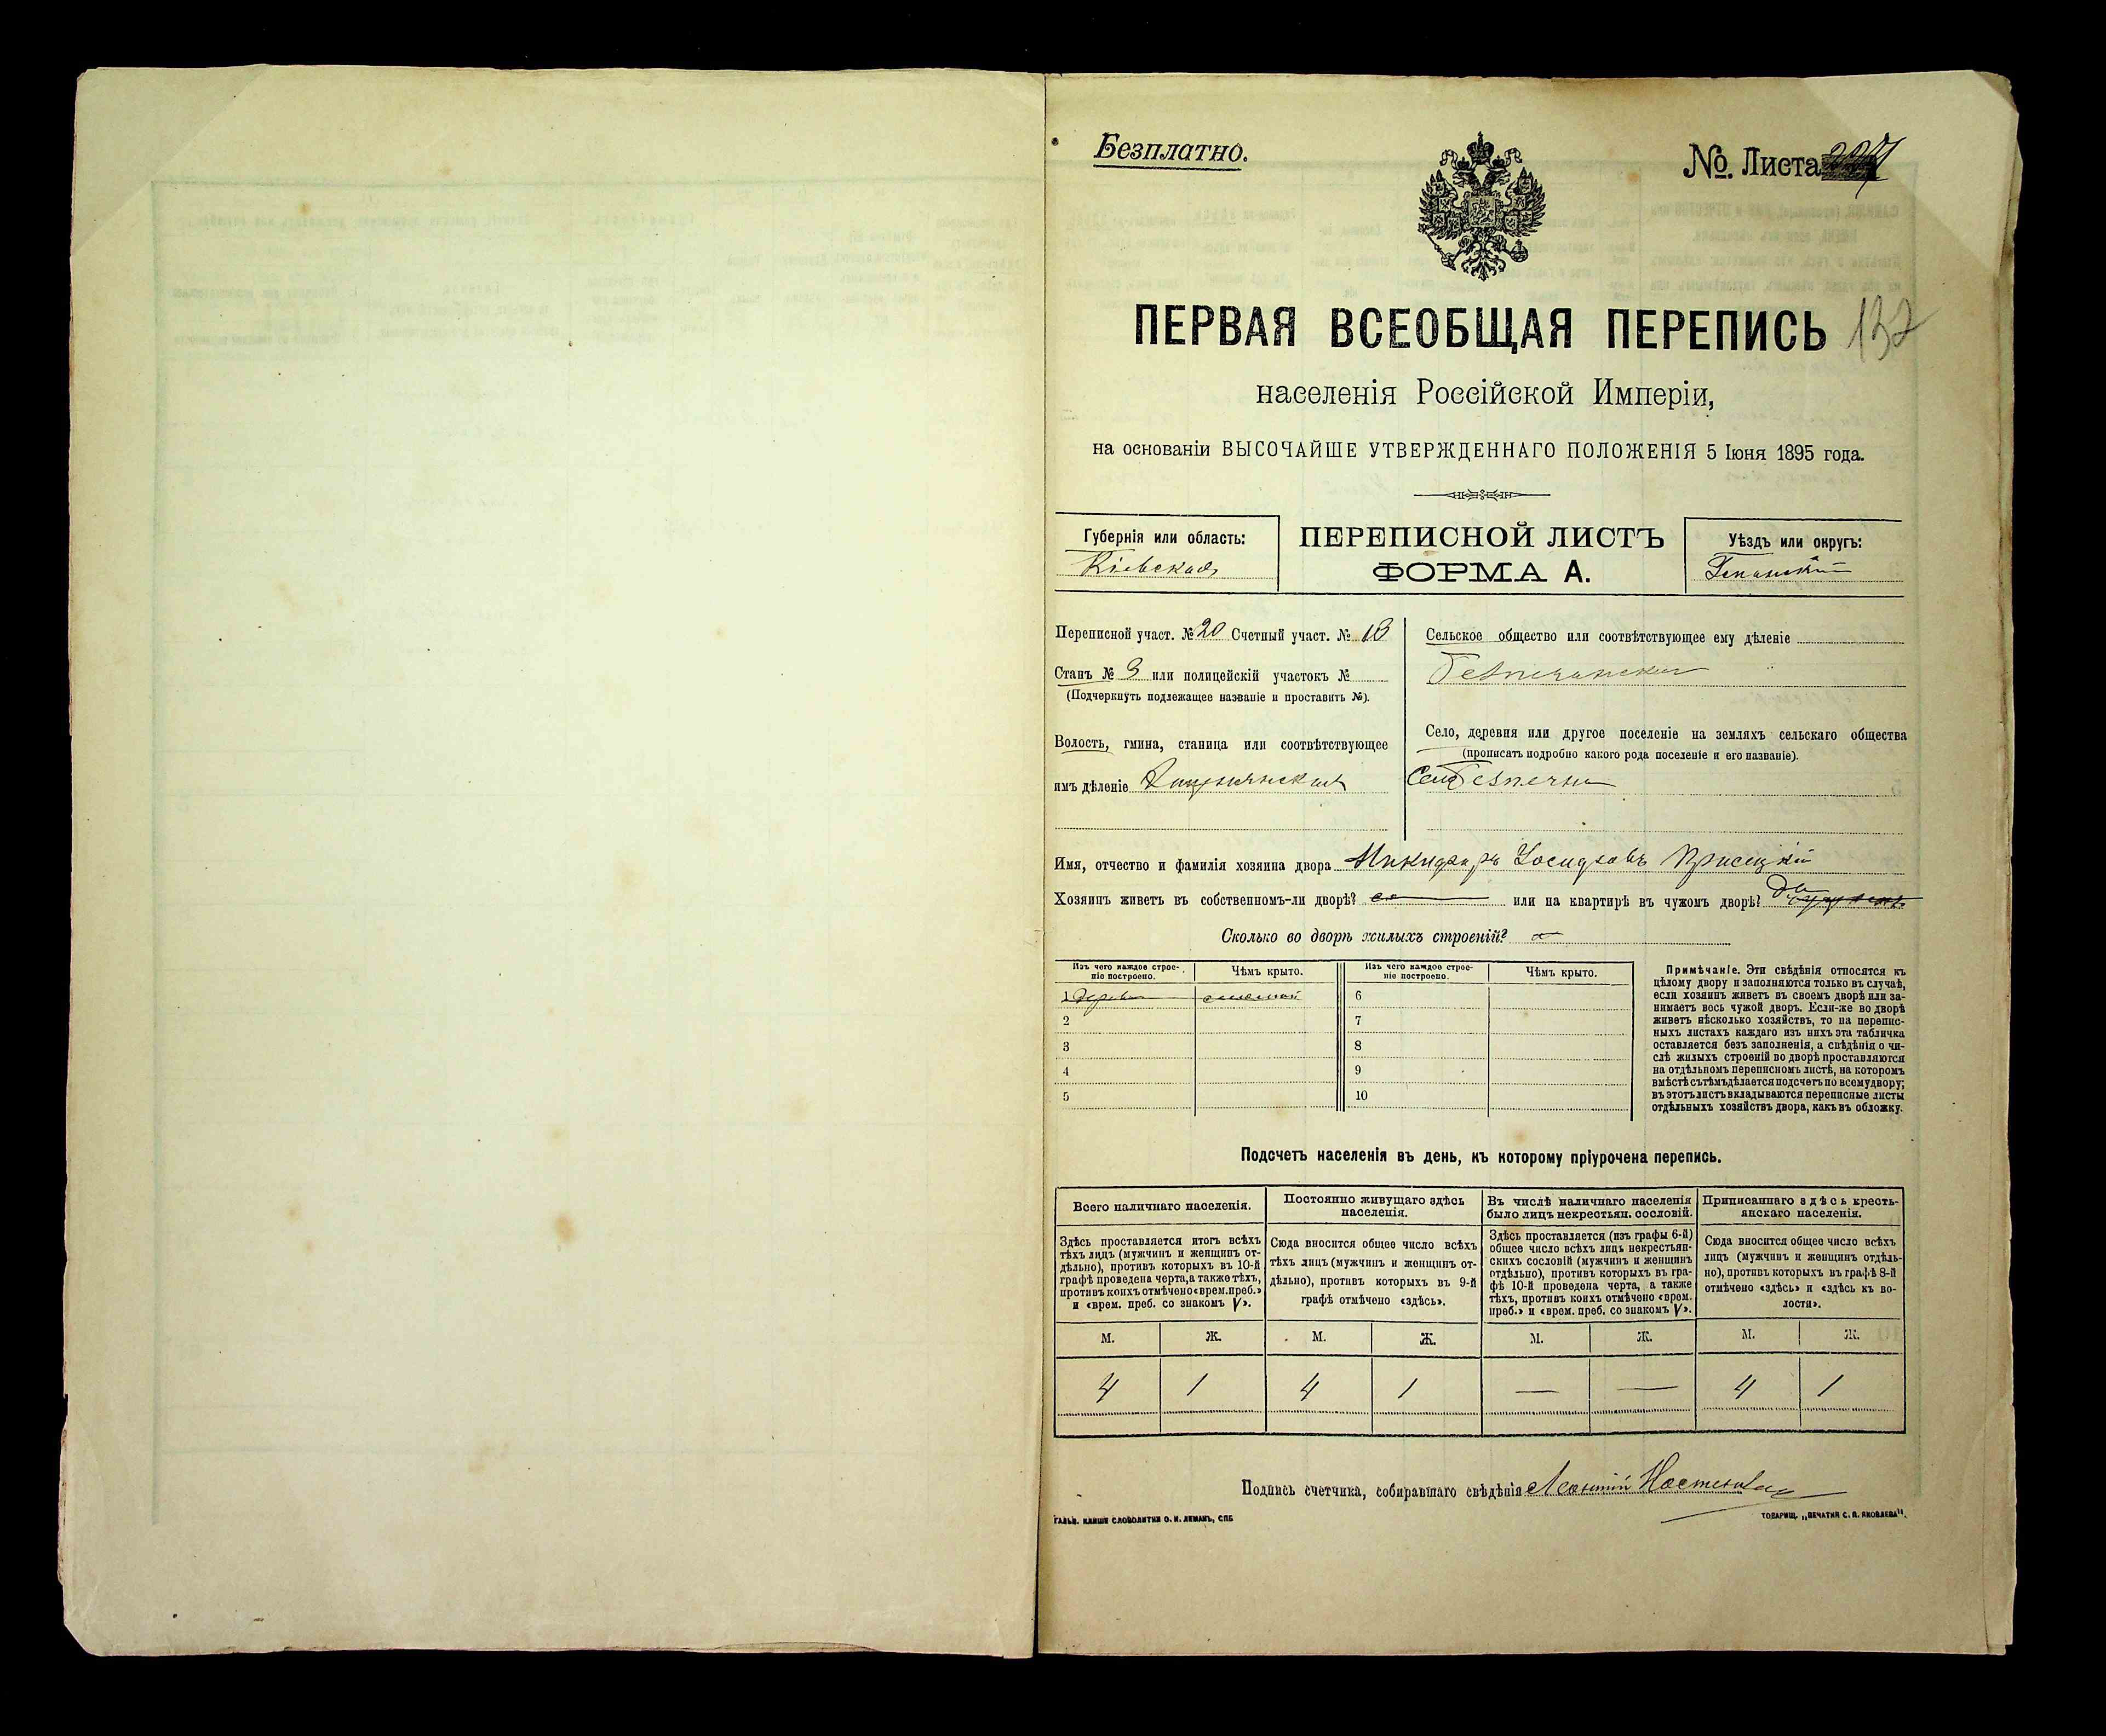 Безплатно.
№ Листа
ПЕРВАЯ ВСЕОБЩАЯ ПЕРЕПИСЬ
137
населенія Россійской Имперіи,
на основаніи ВЫСОЧАЙШЕ УТВЕРЖДЕННАГО ПОЛОЖЕНІЯ 5 Іюня 1895 года.
Губернія или область:
Кіевская
ПЕРЕПИСНОЙ ЛИСТЪ
ФОРМА А.
Уѣздъ или округъ:
Переписной участ. № 20 Счетный участ. № 13
Станъ № 3 или полицейскій участокъ №
(Подчеркнуть подлежащее названіе и проставить №).
Волость, гмина, станица или соотвѣтствующее
имъ дѣленіе
Сельское общество или соотвѣтствующее ему дѣленіе
Безпечанское
Село, деревня или другое поселеніе на земляхъ сельскаго общества
(прописать подробно какого рода поселеніе и его названіе).
Село Безпечна
Имя, отчество и фамилія хозяина двора
Хозяинъ живетъ въ собственномъ-ли дворѣ? или на квартирѣ въ чужомъ дворѣ?
Сколько во дворѣ жилыхъ строеній?
Изъ чего каждое строеніе построено.
Чѣмъ крыто.
Изъ чего каждое строеніе построено.
Чѣмъ крыто.
1 6
2 7
3 8
4 9
5 10
Примѣчаніе. Эти свѣдѣнія относятся къ
цѣлому двору и заполняются только въ случаѣ,
если хозяинъ живетъ въ своемъ дворѣ или за-
нимаетъ весь чужой дворъ. Если-же во дворѣ
живетъ нѣсколько хозяйствъ, то на перепис-
ныхъ листахъ каждаго изъ нихъ эта табличка
оставляется безъ заполненія, а свѣдѣнія о чи-
слѣ жилыхъ строеній во дворѣ проставляются
на отдѣльномъ переписномъ листѣ, на которомъ
вмѣстѣ съ тѣмъ дѣлается подсчетъ по всему двору;
въ этотъ листъ вкладываются переписные листы
отдѣльныхъ хозяйствъ двора, какъ въ обложку.
Подсчетъ населенія въ день, къ которому пріурочена перепись.
Всего наличнаго населенія.
Здѣсь проставляется итогъ всѣхъ
тѣхъ лицъ (мужчинъ и женщинъ от-
дѣльно), противъ которыхъ въ 10-й
графѣ проведена черта, а также тѣхъ,
противъ коихъ отмѣчено «врем. преб.»
и «врем. преб. со знакомъ V».
Постоянно живущаго здѣсь
населенія.
Сюда вносится общее число всѣхъ
тѣхъ лицъ (мужчинъ и женщинъ от-
дѣльно), противъ которыхъ въ 9-й
графѣ отмѣчено «здѣсь».
Въ числѣ наличнаго населенія
было лицъ некрестьян. сословій.
Здѣсь проставляется (изъ графы 6-й)
общее число всѣхъ лицъ некрестьян-
скихъ сословій (мужчинъ и женщинъ
отдѣльно), противъ которыхъ въ гра-
фѣ 10-й проведена черта, а также
тѣхъ, противъ коихъ отмѣчено «врем.
преб.» и «врем. преб. со знакомъ V».
Приписаннаго здѣсь кресть-
янскаго населенія.
Сюда вносится общее число всѣхъ
лицъ (мужчинъ и женщинъ отдѣль-
но), противъ которыхъ въ графѣ 8-й
отмѣчено «здѣсь» и «здѣсь къ во-
лости».
М. Ж. М. Ж. М. Ж. М. Ж.
4 1 4 1 — — 4 1
Подпись счетчика, собиравшаго свѣдѣнія Леонтій
ГАЛЬВ. КЛИШЕ СЛОВОЛИТНИ О. И. ЛЕМАНЪ, СПБ
ТОВАРИЩ. „ПЕЧАТНЯ С. П. ЯКОВЛЕВА".